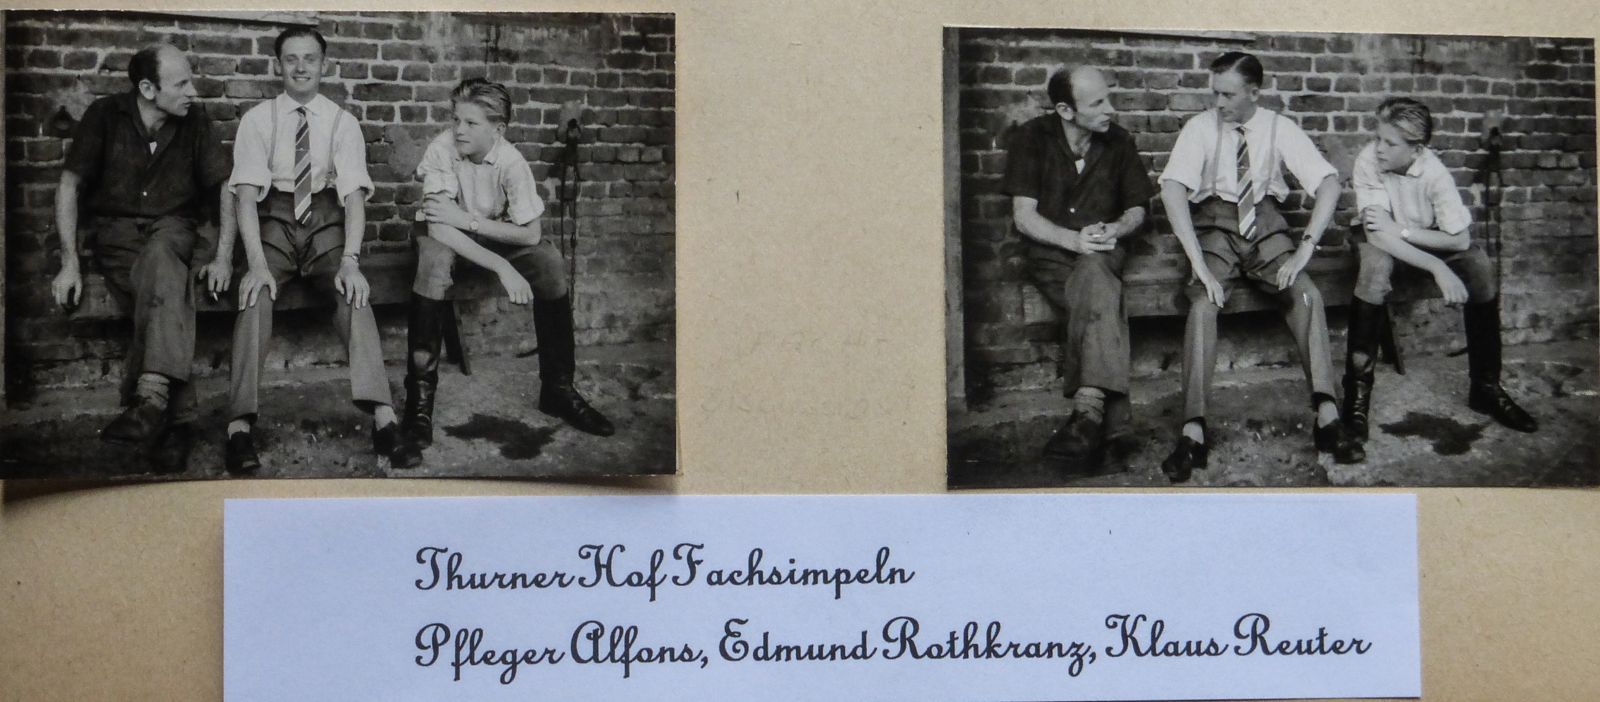 Thurner Hof Fachsimpeln
Pfleger Alfons, Edmund Rothkranz, Klaus Reuter